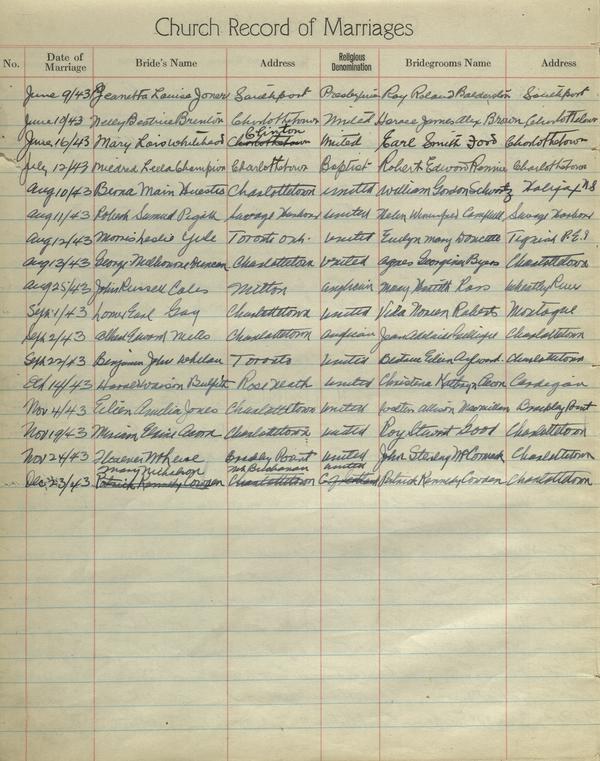 Church Record of Marriages
No. Date of Marriage Bride's Name Address Religious Denomination Bridegrooms Name Address
June 9/43 Jeanetta Louisa Jones Southport Presbyterian Roy Roland Balderston Southport
June 10/43 Nelly Beatrice Brenton Charlottetown United Horace James Alex Brown Charlottetown
Clinton
June 16/43 Mary Lois Whitehead Charlottetown United Earl Smith Charlottetown
July 12/43 Mildred Leela Champion Charlottetown Baptist Robert Edward Rennie Charlottetown
Aug 10/43 Berna Main Huestis Charlottetown United William Gordon Schwartz Halifax NS
Aug 11/43 Robert Samuel Savage Harbour United Helen Winnifred Campbell Savage Harbour
Aug 12/43 Morris Leslie Yule Toronto Ont. United Evelyn Mary Doucette Tignish P.E.I
Aug 13/43 George Melbourne Duncan Charlottetown United Agnes Georgina Byers Charlottetown
Aug 25/43 John Russell Coles Milton Anglican Mary Ross Wheatley River
Sept 1/43 Earl Gay Charlottetown United Vida Noreen Roberts Montague
Sept 2/43 Albert Edward Charlottetown Anglican Jean Adelaide Gillespie Charlottetown
Sept 22/43 Benjamin John Whelan Toronto United Beatrice Eileen Aylward Charlottetown
Oct 14/43 Rose Neath United Christina Kathryn Acorn Cardigan
Nov 4/43 Eileen Amelia Jones Charlottetown United Walter Allison Macmillan Brackley Point
Nov 19/43 Miriam Elsie Acorn Charlottetown United Roy Stewart Good Charlottetown
Nov 24/43 Florence Brackley Point United John Sterling McCormack Charlottetown
Mary Nicholson Mt. Buchanan United
Dec 23/43 Patrick Kennedy Cowden Charlottetown Patrick Kennedy Cowden Charlottetown